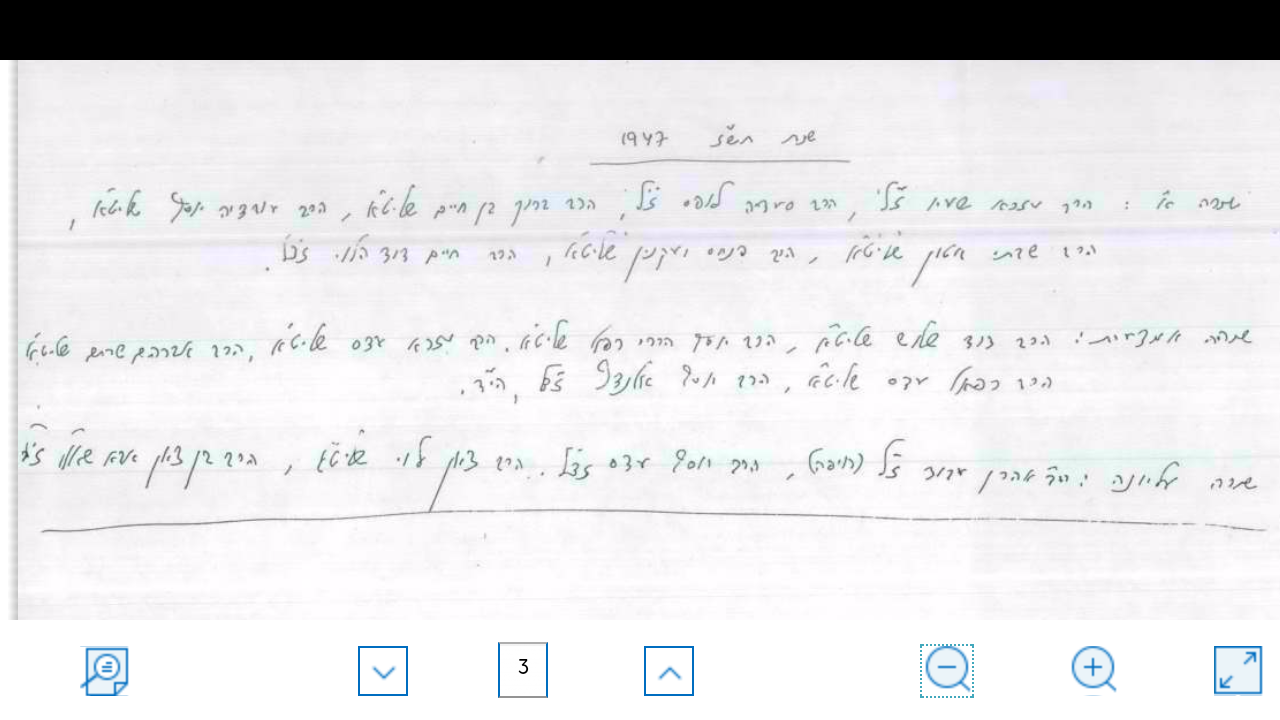 שנת תש"ז 1947
שורה א' : הרב עזרא שעין ז"ל, הרב סעדיה לופס ז"ל, הרב ברוך בן חיים שליט"א, הרב עובדיה יוסף שליט"א,
הרב שבתי אטון שליט"א, הרב פנחס ועקנין שליט"א, הרב חיים דוד הלוי זצ"ל.
שורה אמצעית: הרב דוד שלוש שליט"א, הרב יוסף הררי רפול שליט"א. הרב עזרא עדס שליט"א, הרב אברהם שרים שליט"א
הרב רפאל עדס שליט"א, הרב יוסף ז"ל, הי"ד.
שורה עליונה: הרב אהרן עבוד ז"ל (חיפה), הרב יוסף עדס זצ"ל. הרב ציון לוי שליט"א, הרב בן ציון אבא שאול זצ"ל
3